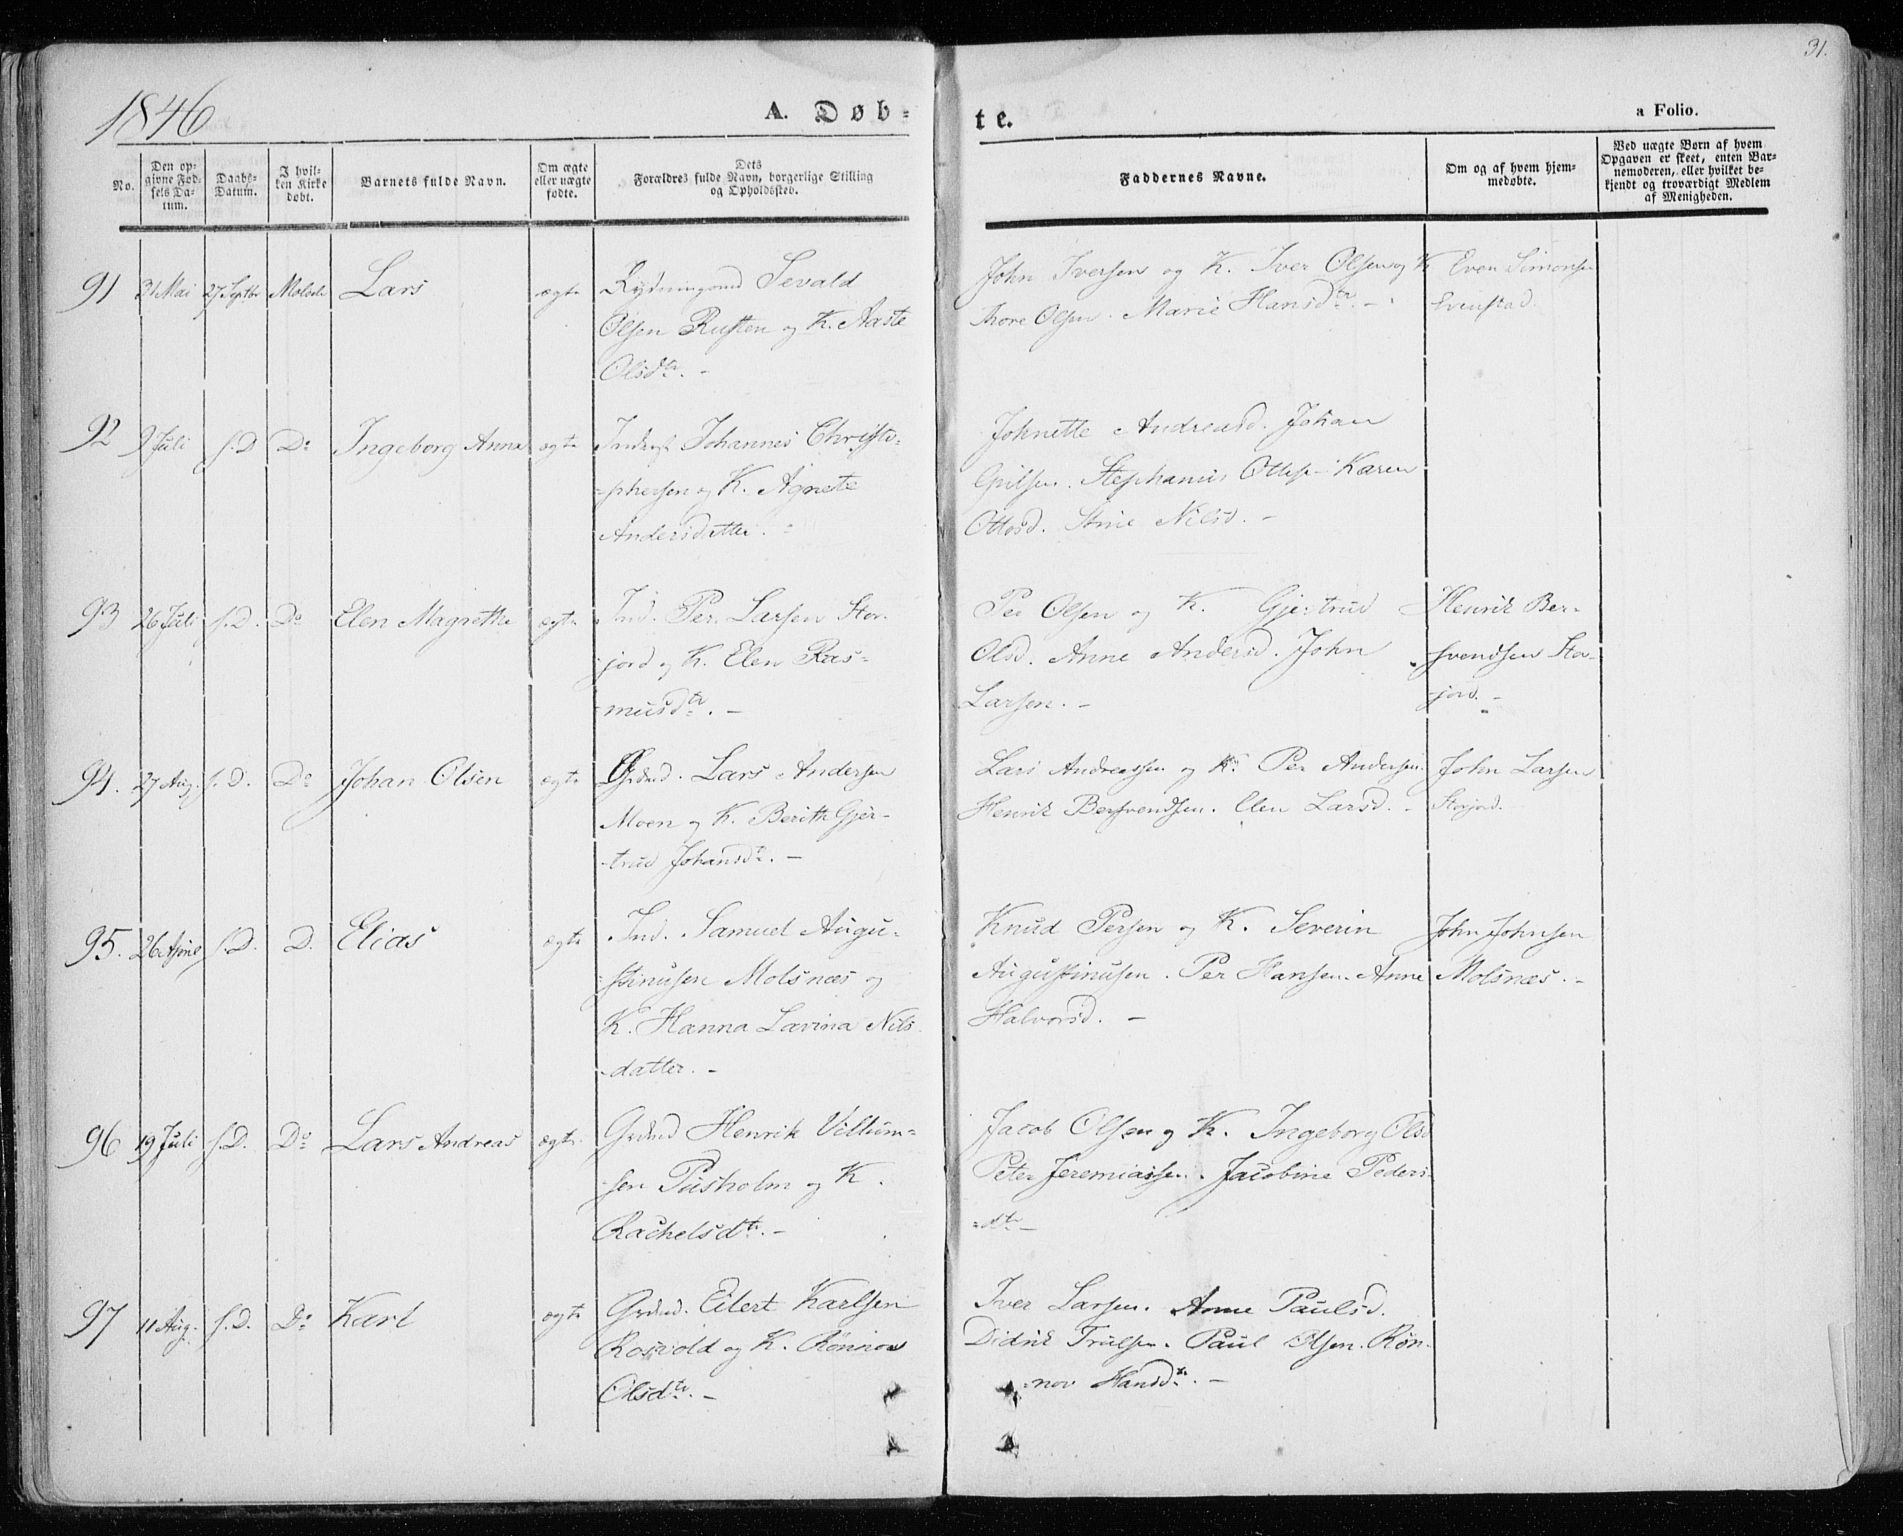 31.
1846
A. Døb-
te.
a Folio.
No.
Den op-
givne Fød-
sels Da-
tum.
Daabs-
Datum.
I hvil-
ken Kirke
døbt.
Barnets fulde Navn.
Om ægte
eller uægte
fødte.
Dets
Forældres fulde Navn, borgerlige Stilling
og Opholdssted.
Faddernes Navne.
Om og af hvem hjem-
medøbte.
Ved uægte Børn af hvem
Opgaven er skeet, enten Bar-
nemoderen, eller hvilket be-
kjendt og troværdigt Medlem
af Menigheden.
91 31 Mai 27 Septbr Lars ægte Rydningsmd Sevald
Olsen Rusten og K. Aaste
Olsdtr. -
John Iversen og K. Iver Olsen og K
Thore Olsen. Marie Hansdtr. -
Even Simonsen
Evenstad.
92 9 Juli s. D. Do Ingeborg Anna ægte Inderst Johannes Christo-
phersen og K. Agnete
Andersdatter. -
Johnette Andreasd. Johan
Stephanus Ottesen Karen
Ottosd. Stine Nilsd. -
93 26 Juli s. D. Do Elen Magrethe ægte Ind. Per Larsen Stor-
jord og K. Elen Ras-
musdtr. -
Per Olsen og K. Gjertrud
Olsd. Anne Andersd. John
Larsen. -
Henrik Ber-
svendsen Stor-
jord. -
94. 27 Aug. s. D. Do Johan Olsen ægte Grdmd. Lars Andersen
Moen og K. Berith Gjer-
trud Johansdtr. -
Lars Andreassen og K. Per Andersen
Henrik Bersvendsen. Elen Larsd. -
John Larsen
Storjord.
95. 26 April s. D. D. Elias ægte Ind. Samuel Augu-
stinusen Molsnæs og
K. Hanna Lavina Nils-
datter. -
Knud Persen og K. Severin
Augustinusen. Per Hansen. Anne
Halvorsd. -
John Johnsen
Molsnæs. -
96 19 Juli s. D. Do Lars Andreas ægte Grdmd Henrik Villum-
sen Pusholm og K.
Rachelsdtr. -
Jacob Olsen og K. Ingeborg Olsd
Peter Jeremiassen. Jacobine Peders-
dtr -
97 11 Aug. s. D. Do Karl ægte Grdmd. Eilert Karlsen
Rosvold og K. Rønnov
Olsdtr. -
Iver Larsen. Anne Paulsd.
Didrik Trulsen. Paul Olsen. Røn-
nov Hansdtr. -